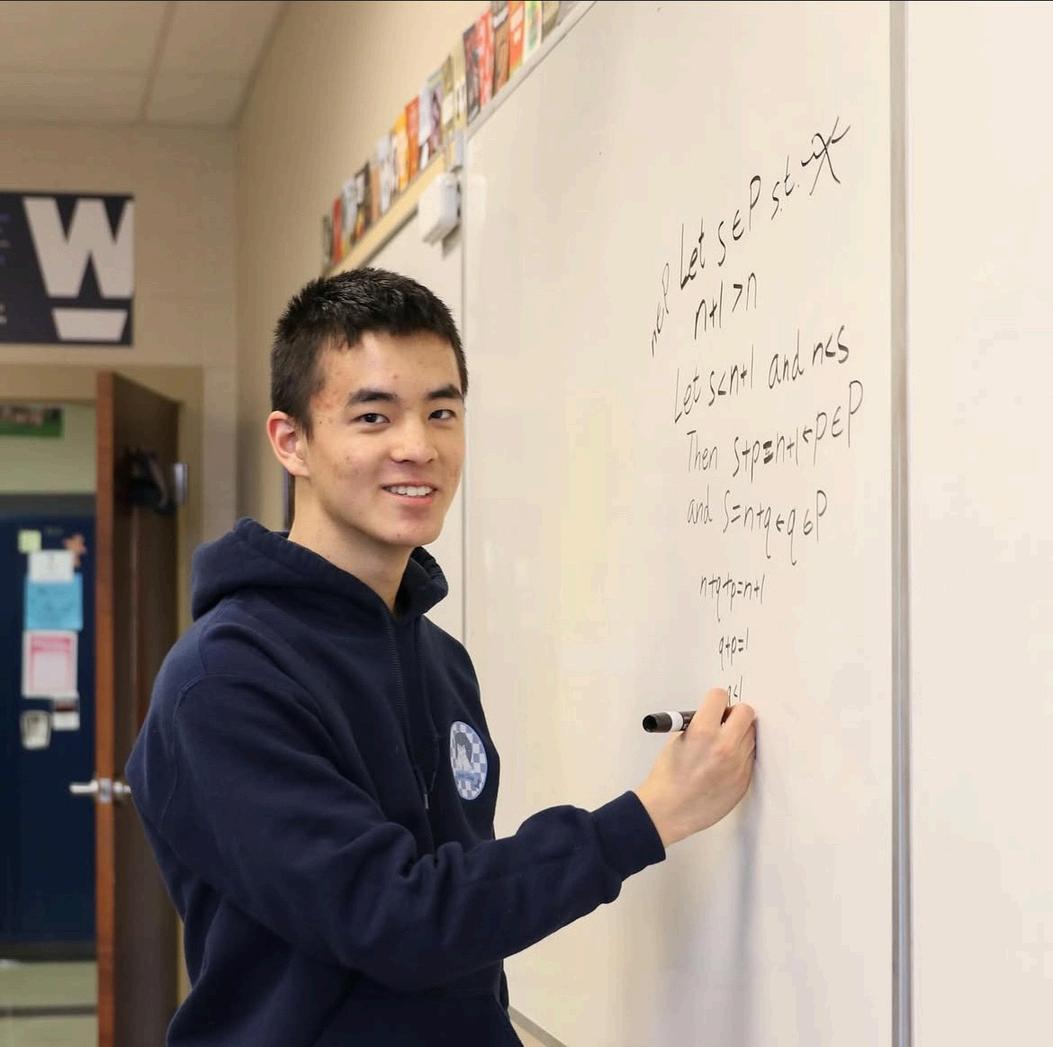 W
Let s∈P s.t.
n∈P
n+1>n
Let s<n+1 and n<s
Then s+p=n+1 ← p∈P
and s=n+q ← q∈P
n+q+p=n+1
q+p=1
q<1